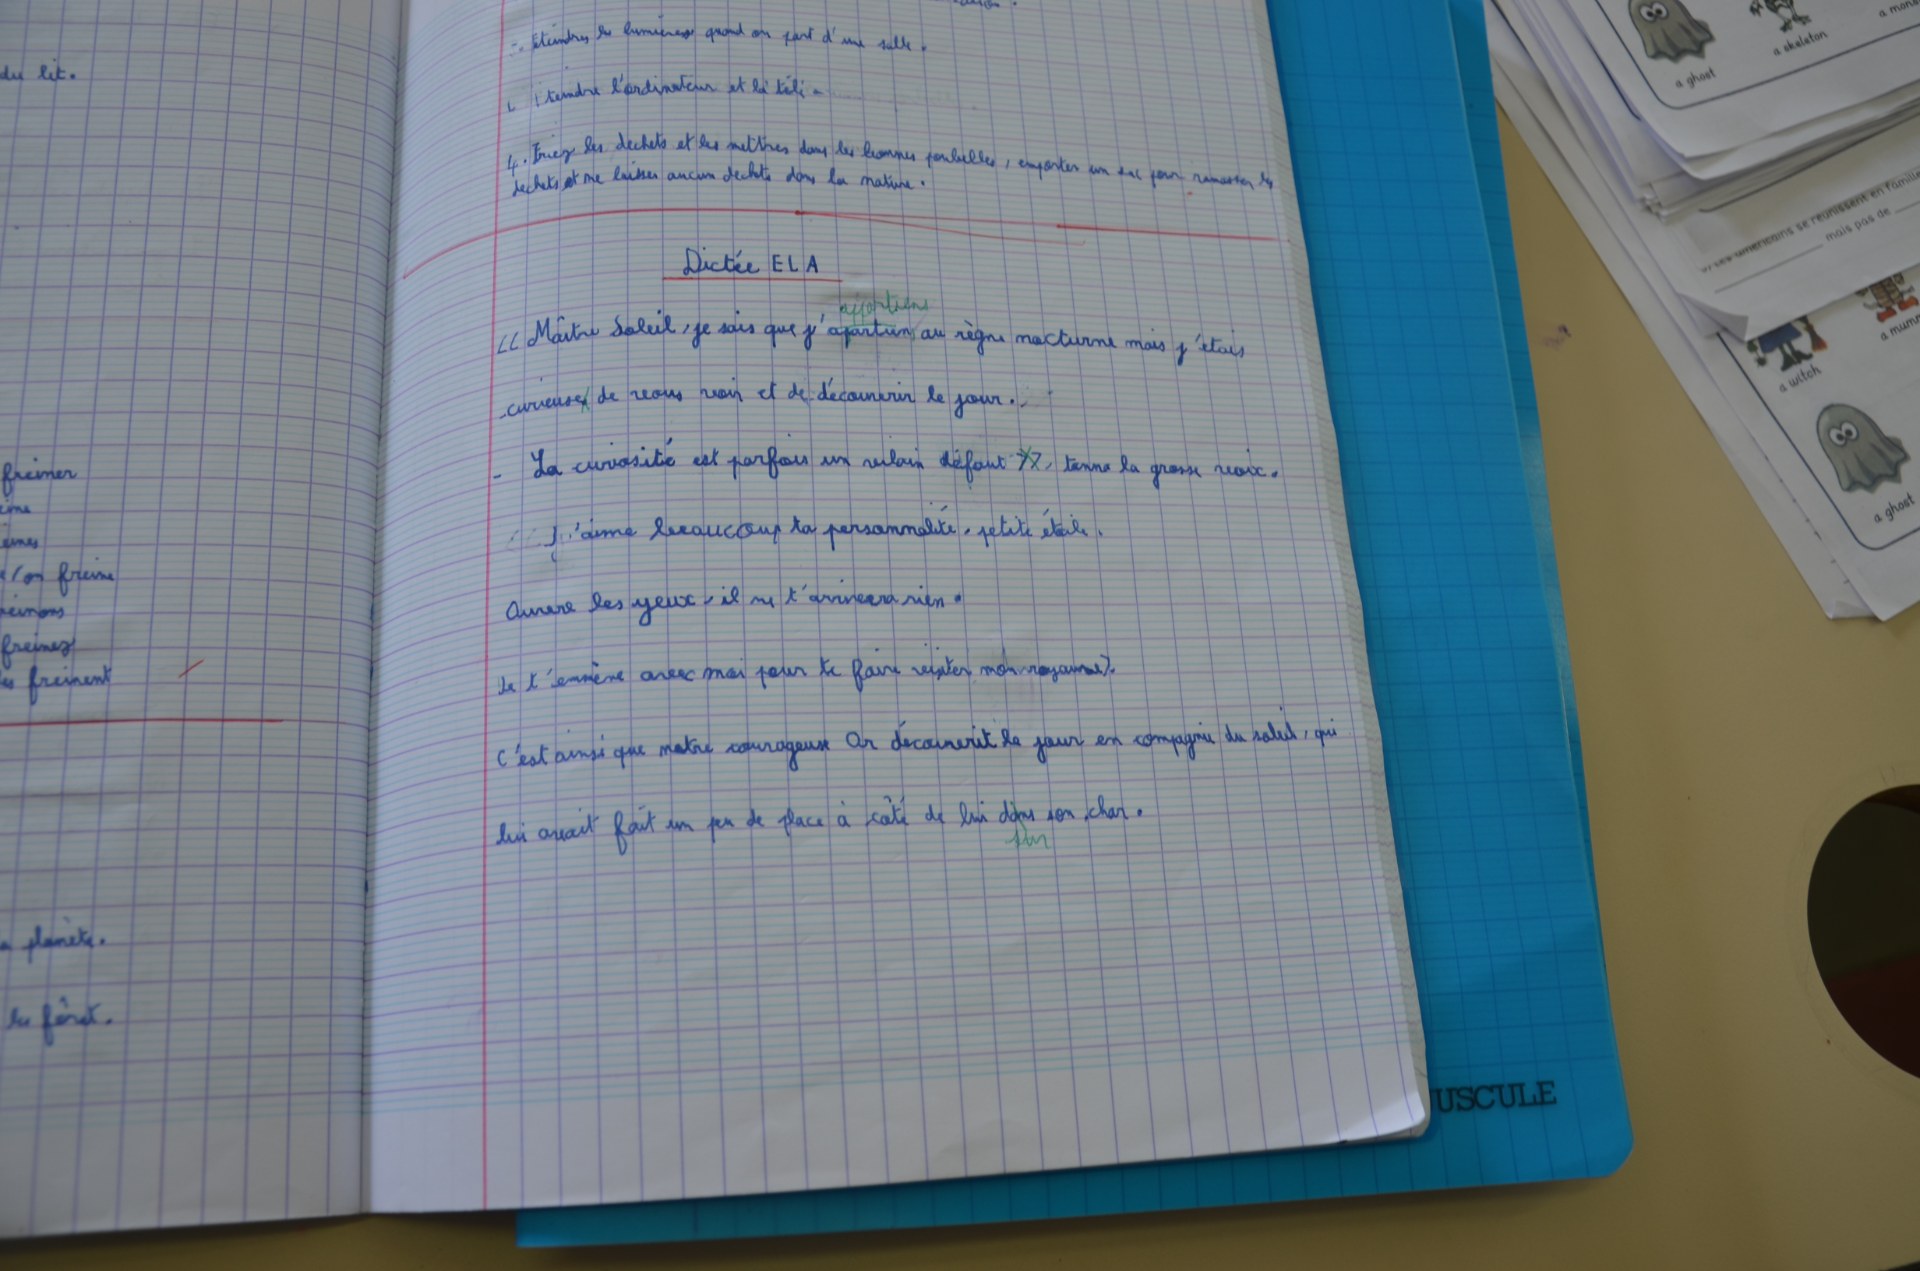 du lit.
freiner
eines
on freine
freinez
freinent
planète.
fôret.
éteindres les lumières quand on part d'une salle.
teindre l'ordinateur et la téli.
4. Triez les dechets et les mettres dans les bonnes poubelles, emporter un sac pour ramasser les
dechets et ne laisser aucun dechets dans la nature.
Dictée ELA
appartiens
<< Maître Soleil, je sais que j'apartien au règne nocturne mais j'étais
curieuse de vous voir et de découvrir le jour.
- La curiosité est parfois un vilain défaut >>, tonna la grosse voix.
J'aime beaucoup ta personnalité, petite étoile.
Ouvre les yeux, il ne t'arrivera rien.
Je t'emmène avec moi pour te faire visiter mon royaume>.
C'est ainsi que notre courageuse Or découvrit le jour en compagnie du soleil, qui
lui avait fait un peu de place à côté de lui dans son char.
sur
USCULE
a ghost
a skeleton
a mons
américains se réunissent en famille
mais pas de
a mumm
a witch
a ghost